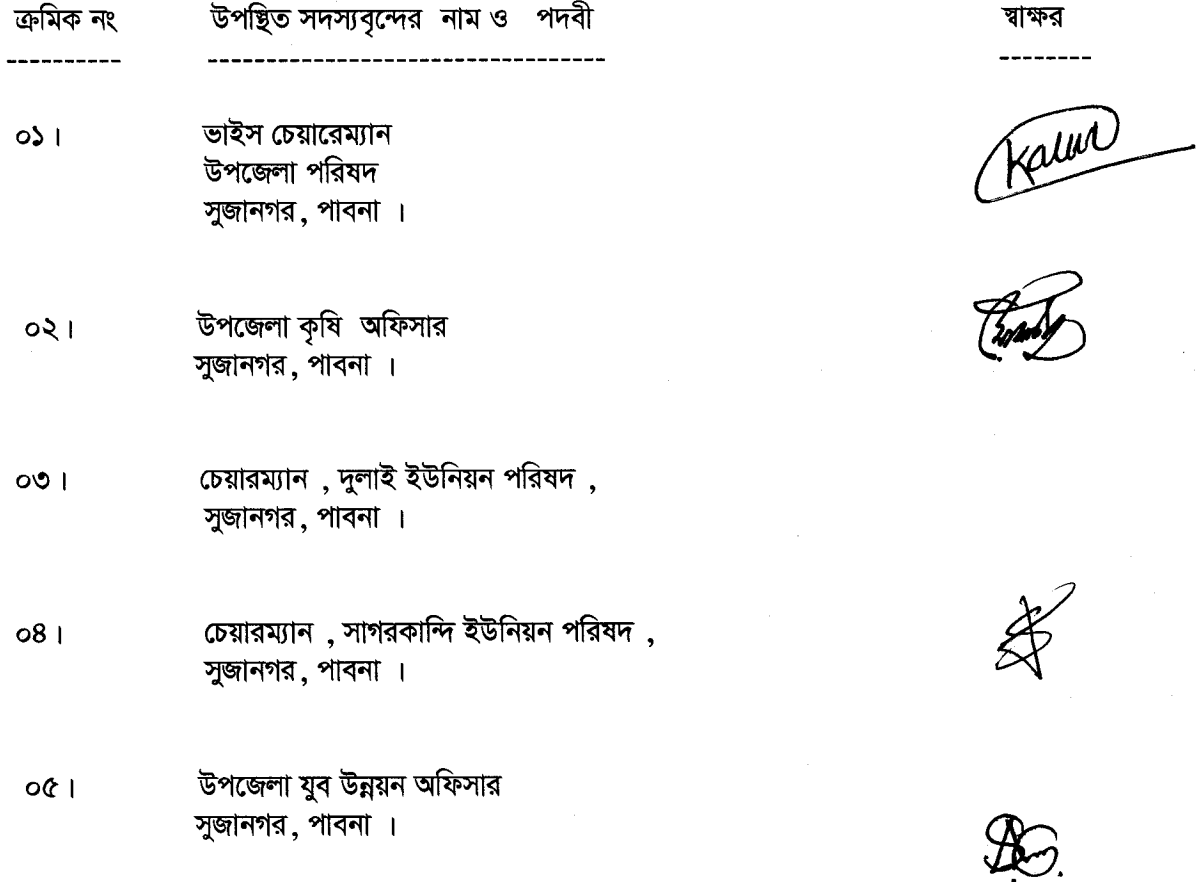 ক্রমিক নং উপস্থিত সদস্যবৃন্দের নাম ও পদবী স্বাক্ষর
---------- ---------------------------------- --------
০১। ভাইস চেয়ারেম্যান
উপজেলা পরিষদ
সুজানগর, পাবনা ।
০২। উপজেলা কৃষি অফিসার
সুজানগর, পাবনা ।
০৩। চেয়ারম্যান , দুলাই ইউনিয়ন পরিষদ ,
সুজানগর, পাবনা ।
০৪। চেয়ারম্যান , সাগরকান্দি ইউনিয়ন পরিষদ ,
সুজানগর, পাবনা ।
০৫। উপজেলা যুব উন্নয়ন অফিসার
সুজানগর, পাবনা ।